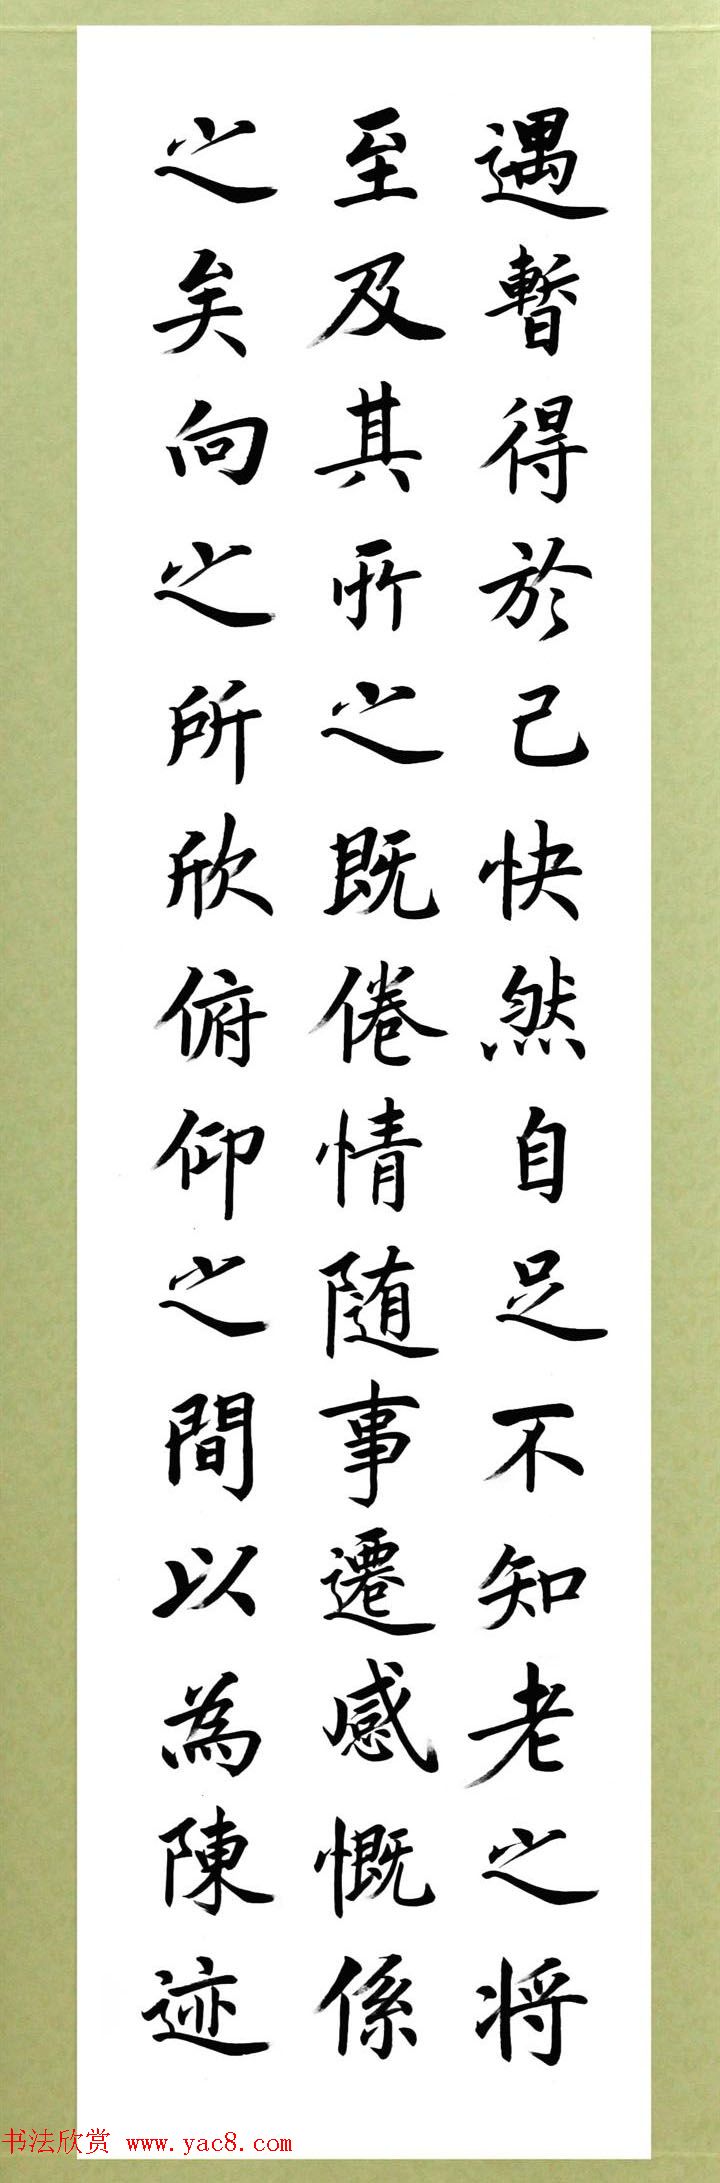 遇暫得於己快然自足不知老之将
至及其所之既倦情随事遷感慨係
之矣向之所欣俯仰之間以為陳迹
书法欣赏 www.yac8.com